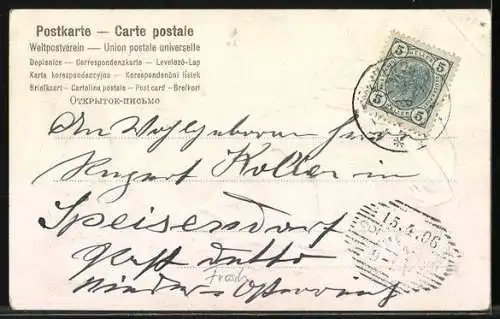 Postkarte — Carte postale
Weltpostverein — Union postale universelle
Dopisnice — Correspondenzkarte — Levelező-Lap
Karta korespondencyjna — Korespondenční lístek
Briefkaart — Cartolina postale — Post card — Brefkort
ОТКРЫТОЕ-ПИСЬМО
5 5
5 5
An Wohlgeboren Herrn
Koller in
Speisendorf
Post detto
Nieder-Österreich
15.4.06